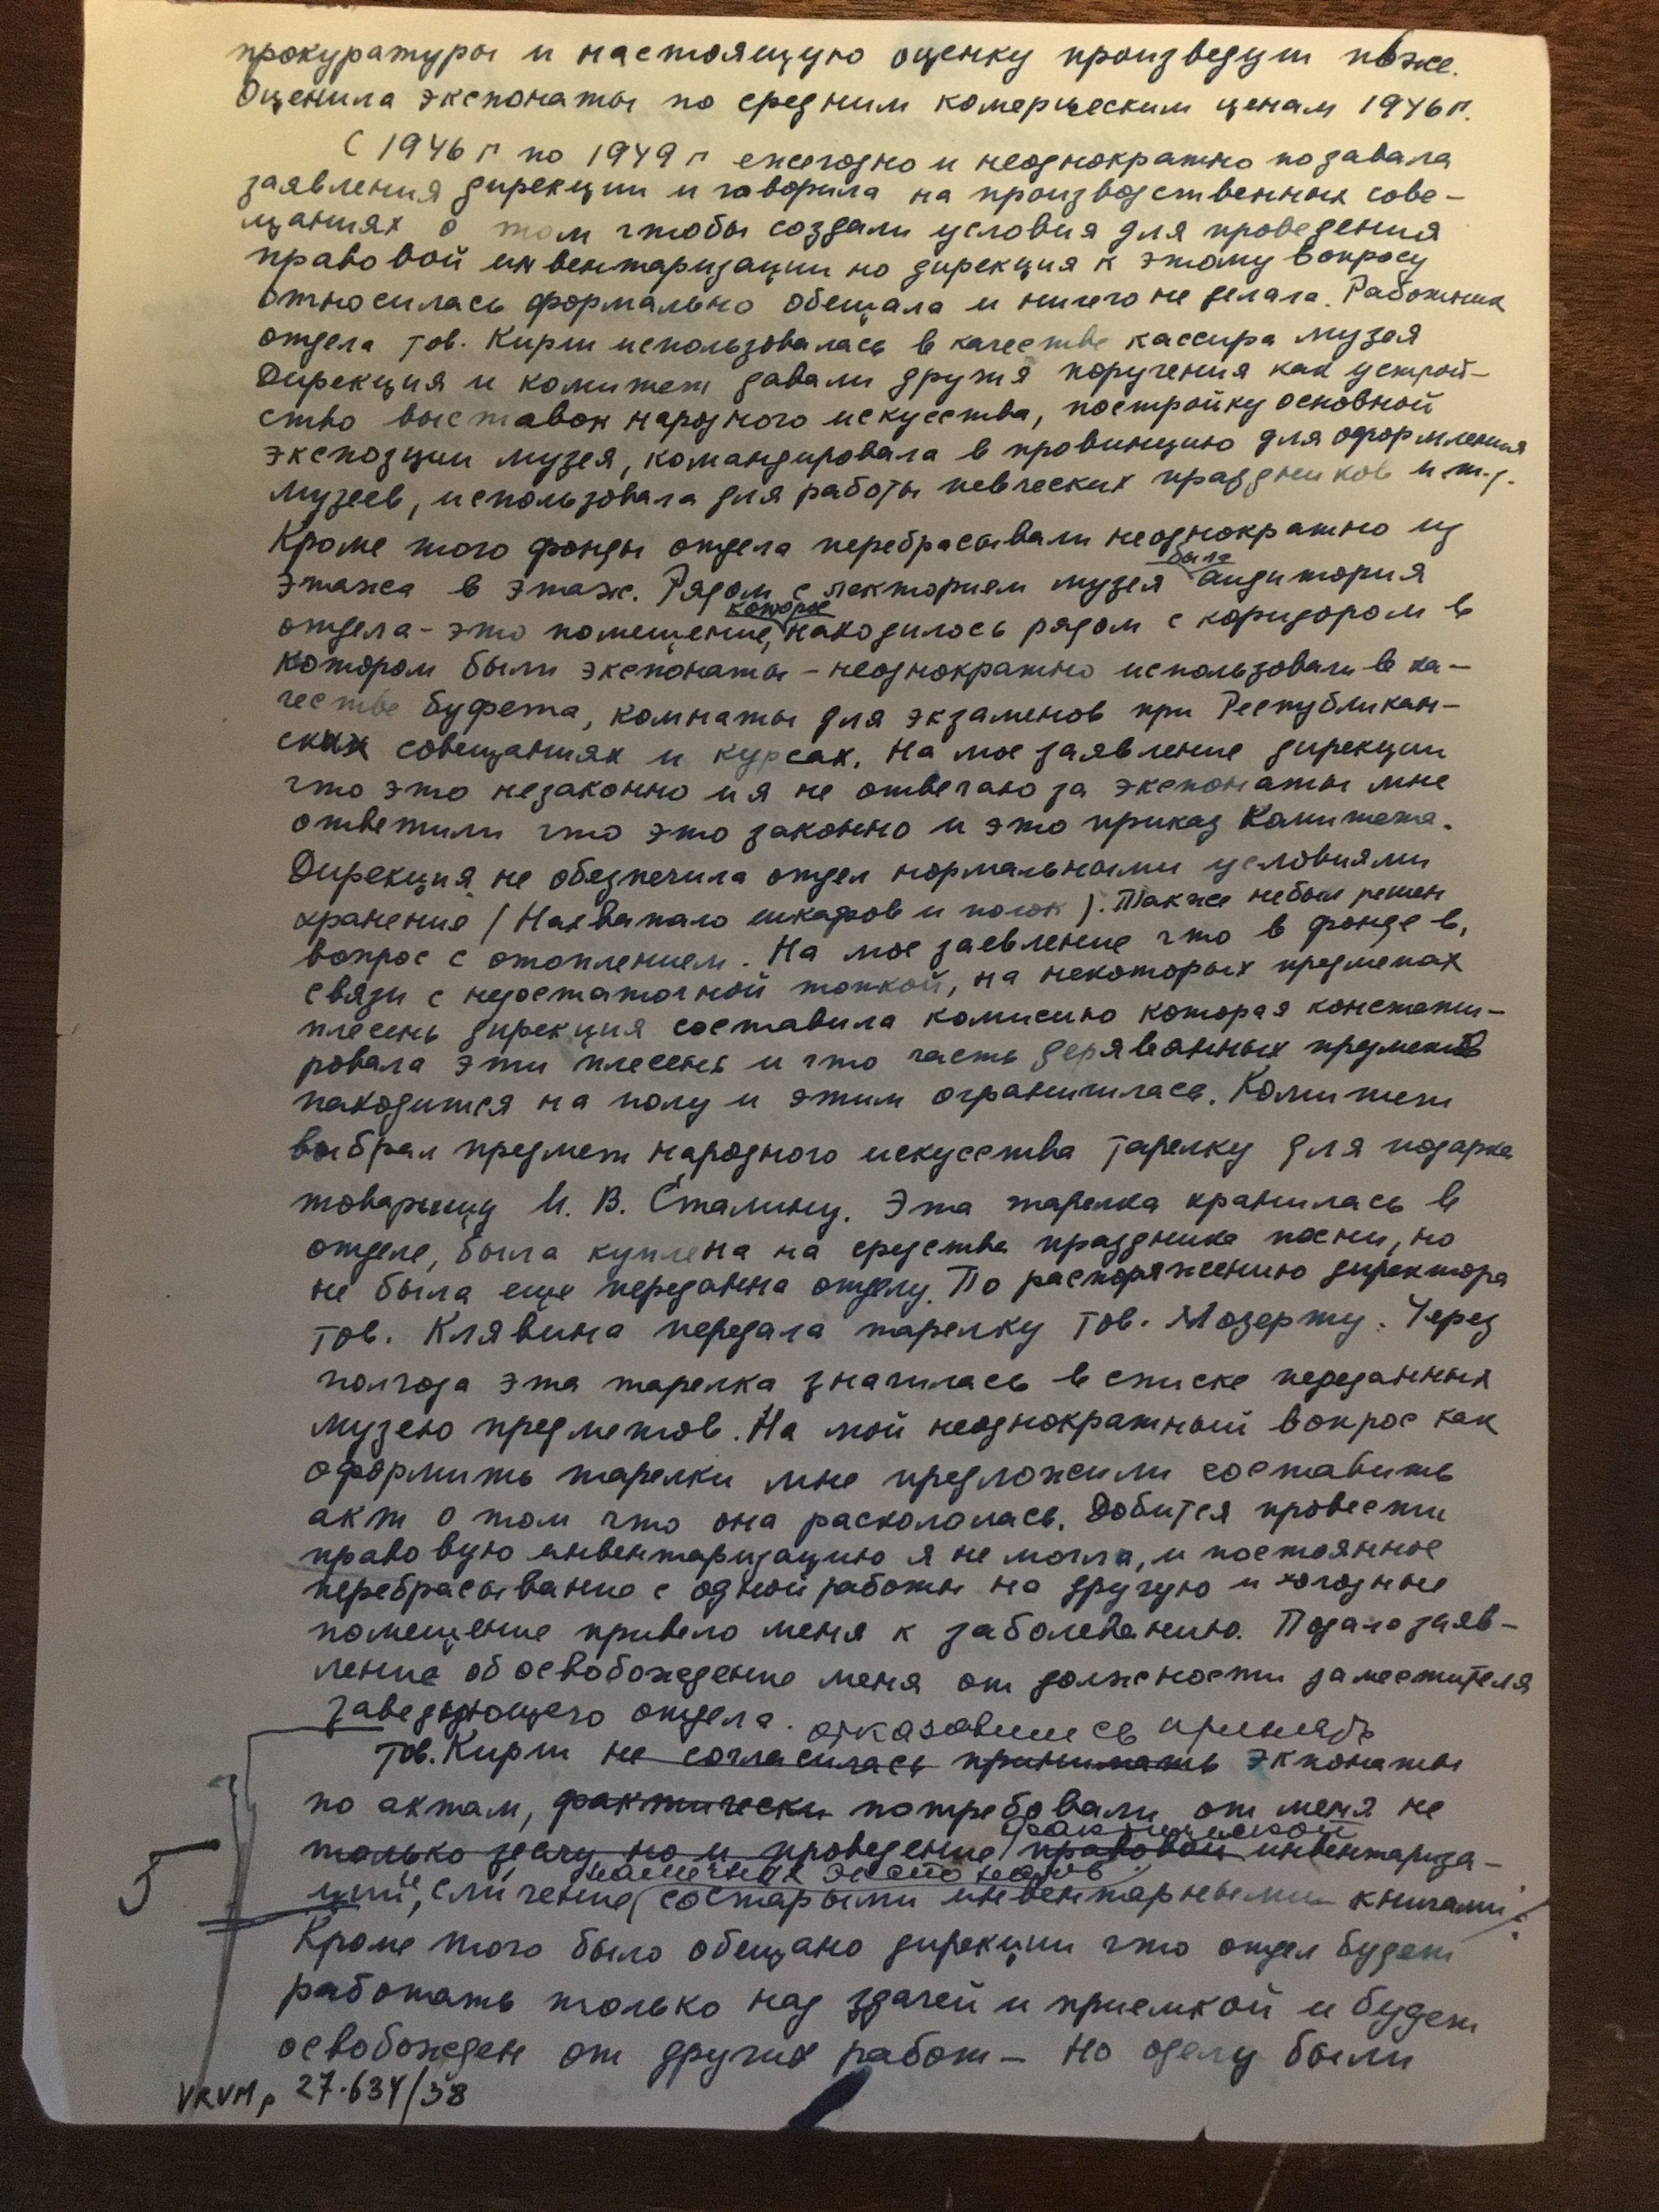 прокуратуры и настоящую оценку произведут позже.
Оценила экспонаты по средним комерческим ценам 1946 г.
С 1946 г по 1949 г ежегодно и неоднократно подавала
заявления дирекции и говорила на производственных сове-
щаниях о том чтобы создали условия для проведения
правовой инвентаризации но дирекция к этому вопросу
относилась формально обещала и ничего не делала. Работник
отдела тов. Кирш использовалась в качестве кассира музея
Дирекция и комитет давали другия поручения как устрой-
ство выставок народного искусства, постройку основной
экспозции музея, командировала в провинцию для оформления
музеев, использовала для работы певческих праздников и т.д.
Кроме того фонды отдела перебрасывали неоднократно из
этажа в этаж. Рядом с лекторием музея была аудитория
отдела - это помещение, которое находилось рядом с коридором в
котором были экспонаты - неоднократно использовали в ка-
честве буфета, комнаты для экзаменов при Республикан-
ских совещаниях и курсах. На мое заявление дирекции
что это незаконно и я не отвечаю за экспонаты мне
ответили что это законно и это приказ Комитета.
Дирекция не обезпечила отдел нормальными условиями
хранение (Нахватало шкафов и полок). Также небыл решен
вопрос с отоплением. На мое заевление что в фонде в,
связи с недостаточной топкой, на некоторых предметах
плесень дирекция составила комисию которая констати-
ровала эти плесень и что часть дерявянных предметов
находится на полу и этим ограничилась. Комитет
выбрал предмет народного искусства тарелку для подарка
товарищу И. В. Сталину. Эта тарелка хранилась в
отделе, была куплена на средства праздника песни, но
не была еще переданна отделу. По распоряжению директора
тов. Клявина передала тарелку тов. Мозерту. Через
полгода эта тарелка значилась в списке переданных
музею предметов. На мой неоднократный вопрос как
оформить тарелки мне предложили составить
акт о том что она раскололась. Добится провести
правовую инвентаризацию я не могла, и постоянное
перебрасывание с одной работы на другую и холодные
помещение привело меня к заболеванию. Подало заяв-
ление об освобождение меня от должности заместителя
заведующего отдела.
отказавшись принять
тов. Кирш не согласилась принимать экпонаты
по актам, фактически потребовали от меня не
фактической
только здачу но и проведение правовой инвентариза-
ции, сличение со старыми инвентарными книгами.
Кроме того было обещано дирекции что отдел будет
работать только над здачей и приемкой и будет
освобожден от других работ - Но оделу были
5
VRVM, 27.634/38